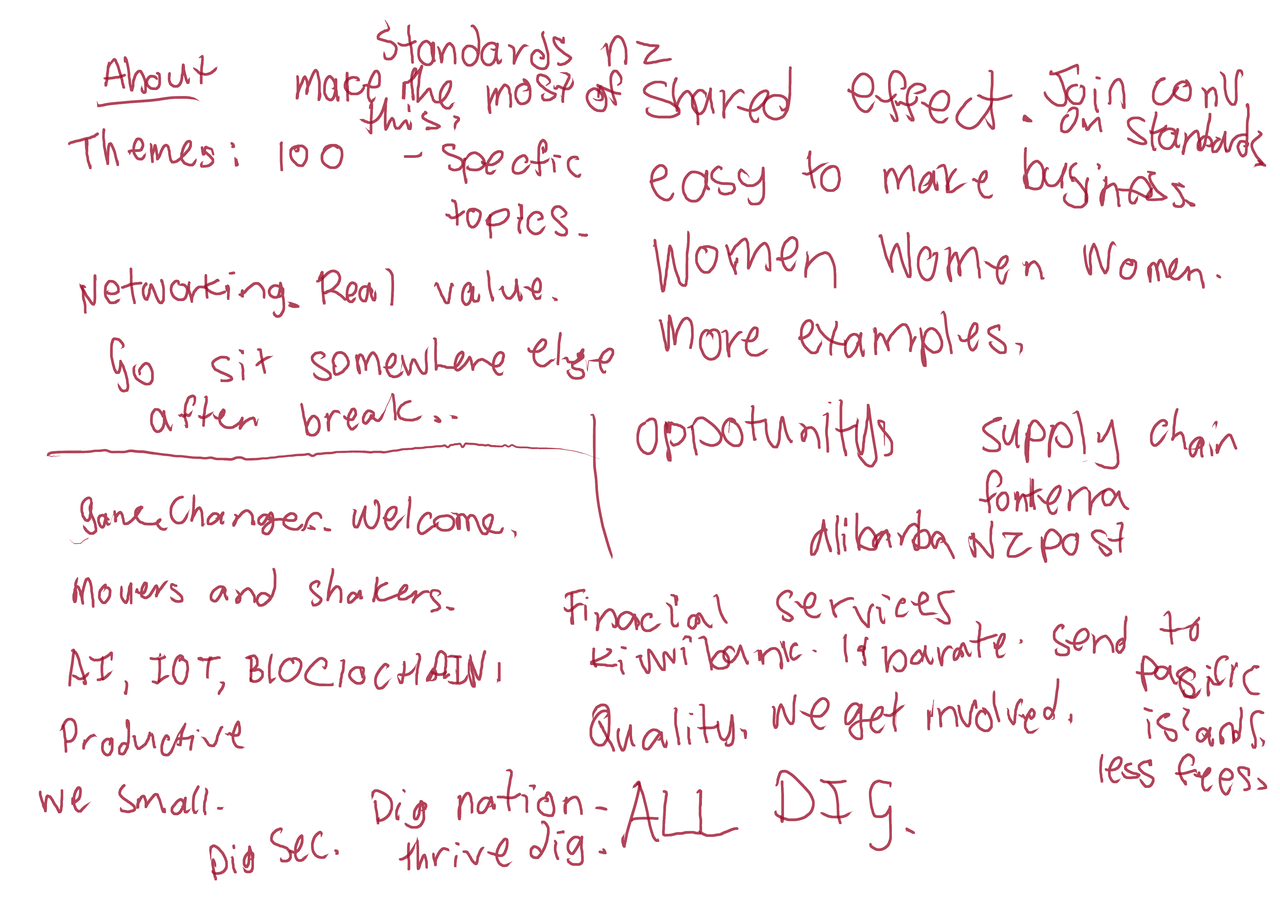 About
Standards nz
make the most of this,
Themes: 100 - specfic
topics.
Networking. Real value.
Go sit somewhere else
after break...
GameChanger. Welcome.
Movers and shakers.
AI, IOT, BLOCKCHAIN,
Productive
we small.
Dig Sec.
Dig nation -
thrive dig.
shared effect. Join conv,
on standards
easy to make business.
Women Women Women.
More examples.
oppotunitys supply chain
fonterra
Alibarba NZ post
Finacial services
Kiwibank. barate. send to
pasific
islands.
less fees.
Quality, we get involved.
ALL DIG.